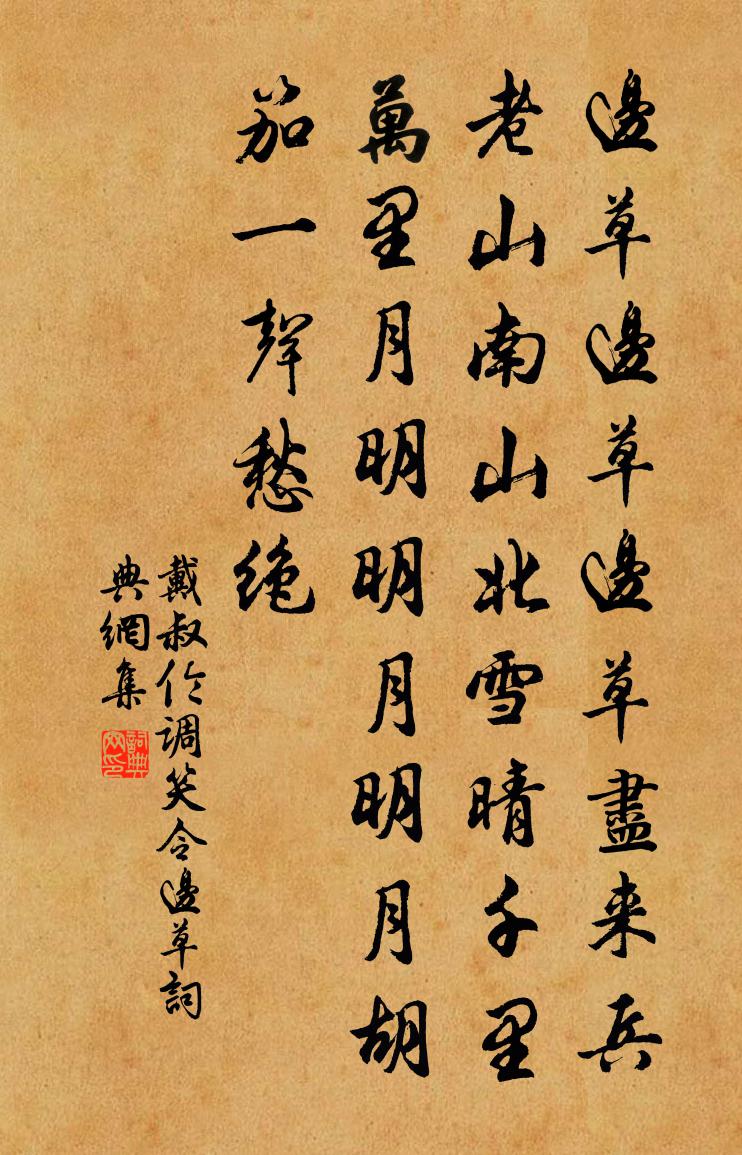 邊草邊邊草邊草盡来兵
老山南山北雪晴千里
萬里月明明月明月胡
笳一聲愁絶
戴叔伦調笑令邊草詞
典網集
詞典網印